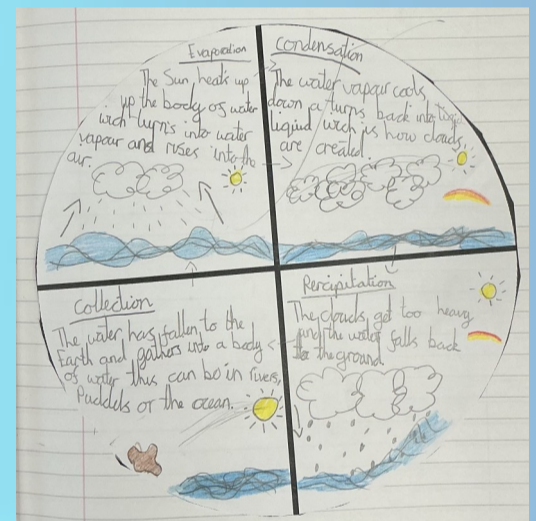 Evaporation
The Sun heats up
up the body of water
wich turns into water
vapour and rises into the
air.
Condensation
The water vapour cools
down a turns back into
liquid wich is how clouds
are created.
Collection
The water has fallen to the
Earth and gathers into a body
of water this can be in rivers,
Puddels or the ocean.
Percipitation
The clouds get too heavy
and the water falls back
to the ground